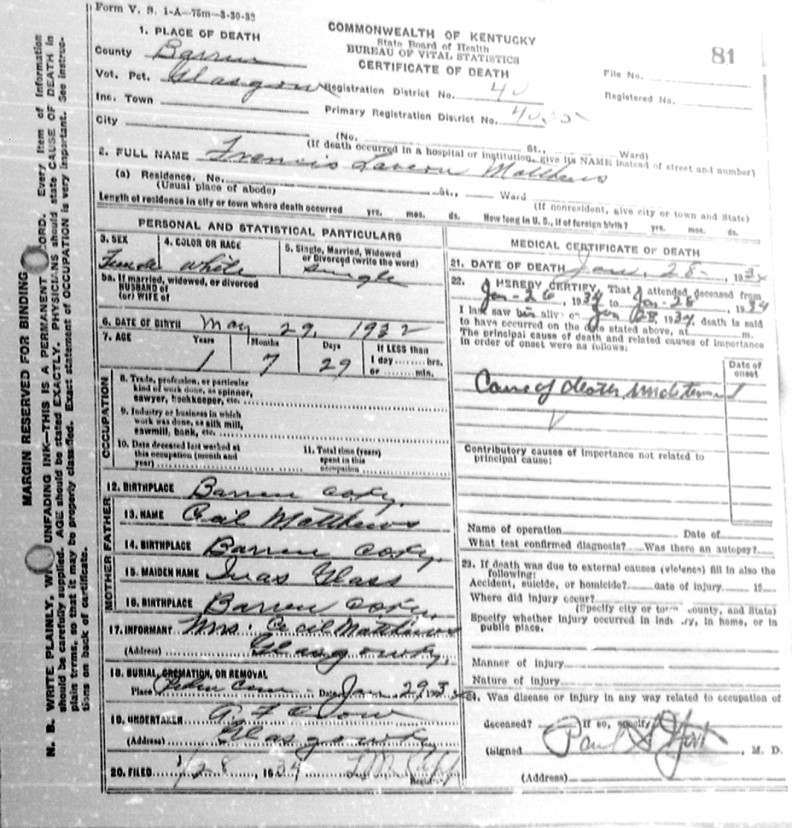 Form V. S. 1-A—75m—3-30-33
COMMONWEALTH OF KENTUCKY
State Board of Health
BUREAU OF VITAL STATISTICS
CERTIFICATE OF DEATH
81
File No.
Registered No.
1. PLACE OF DEATH
County Barren
Vot. Pct. Glasgow
Inc. Town
City
Registration District No. 40
Primary Registration District No.
(No. St., Ward)
(If death occurred in a hospital or institution, give its NAME instead of street and number)
2. FULL NAME Francis Lavern Matthews
(a) Residence. No. St., Ward
(Usual place of abode) (If nonresident, give city or town and State)
Length of residence in city or town where death occurred yrs. mos. ds. How long in U. S., if of foreign birth? yrs. mos. ds.
PERSONAL AND STATISTICAL PARTICULARS
3. SEX 4. COLOR OR RACE 5. Single, Married, Widowed
or Divorced (write the word)
Female white single
5a. If married, widowed, or divorced
HUSBAND of
(or) WIFE of
6. DATE OF BIRTH May 29, 1932
7. AGE Years Months Days If LESS than
1 7 29 1 day hrs.
or min.
OCCUPATION
8. Trade, profession, or particular
kind of work done, as spinner,
sawyer, bookkeeper, etc.
9. Industry or business in which
work was done, as silk mill,
sawmill, bank, etc.
10. Date deceased last worked at
this occupation (month and
year)
11. Total time (years)
spent in this
occupation
12. BIRTHPLACE Barren Co Ky.
FATHER
13. NAME Cecil Matthews
14. BIRTHPLACE Barren Co Ky.
MOTHER
15. MAIDEN NAME Inas Glass
16. BIRTHPLACE Barren Co Ky
17. INFORMANT Mrs. Cecil Matthews
(Address) Glasgow Ky.
18. BURIAL, CREMATION, OR REMOVAL
Place Date Jan 29, 193
19. UNDERTAKER
(Address) Glasgow Ky
20. FILED 1/28, 1934
MEDICAL CERTIFICATE OF DEATH
21. DATE OF DEATH Jan. 28, 1934
22. I HEREBY CERTIFY, That I attended deceased from
Jan-26, 1934 to Jan-28, 1934
I last saw him alive on Jan 28, 1934, death is said
to have occurred on the date stated above, at m.
The principal cause of death and related causes of importance
in order of onset were as follows:
Date of
onset
Cause of death undetermined
Contributory causes of importance not related to
principal cause:
Name of operation Date of
What test confirmed diagnosis? Was there an autopsy?
23. If death was due to external causes (violence) fill in also the
following:
Accident, suicide, or homicide? date of injury 19
Where did injury occur?
(Specify city or town county, and State)
Specify whether injury occurred in industry, in home, or in
public place.
Manner of injury
Nature of injury
24. Was disease or injury in any way related to occupation of
deceased? If so, specify
(Signed Paul S York, M. D.
(Address)
MARGIN RESERVED FOR BINDING
N. B. WRITE PLAINLY, WITH UNFADING INK—THIS IS A PERMANENT RECORD. Every item of information
should be carefully supplied. AGE should be stated EXACTLY. PHYSICIANS should state CAUSE OF DEATH in
plain terms, so that it may be properly classified. Exact statement of OCCUPATION is very important. See instruc-
tions on back of certificate.